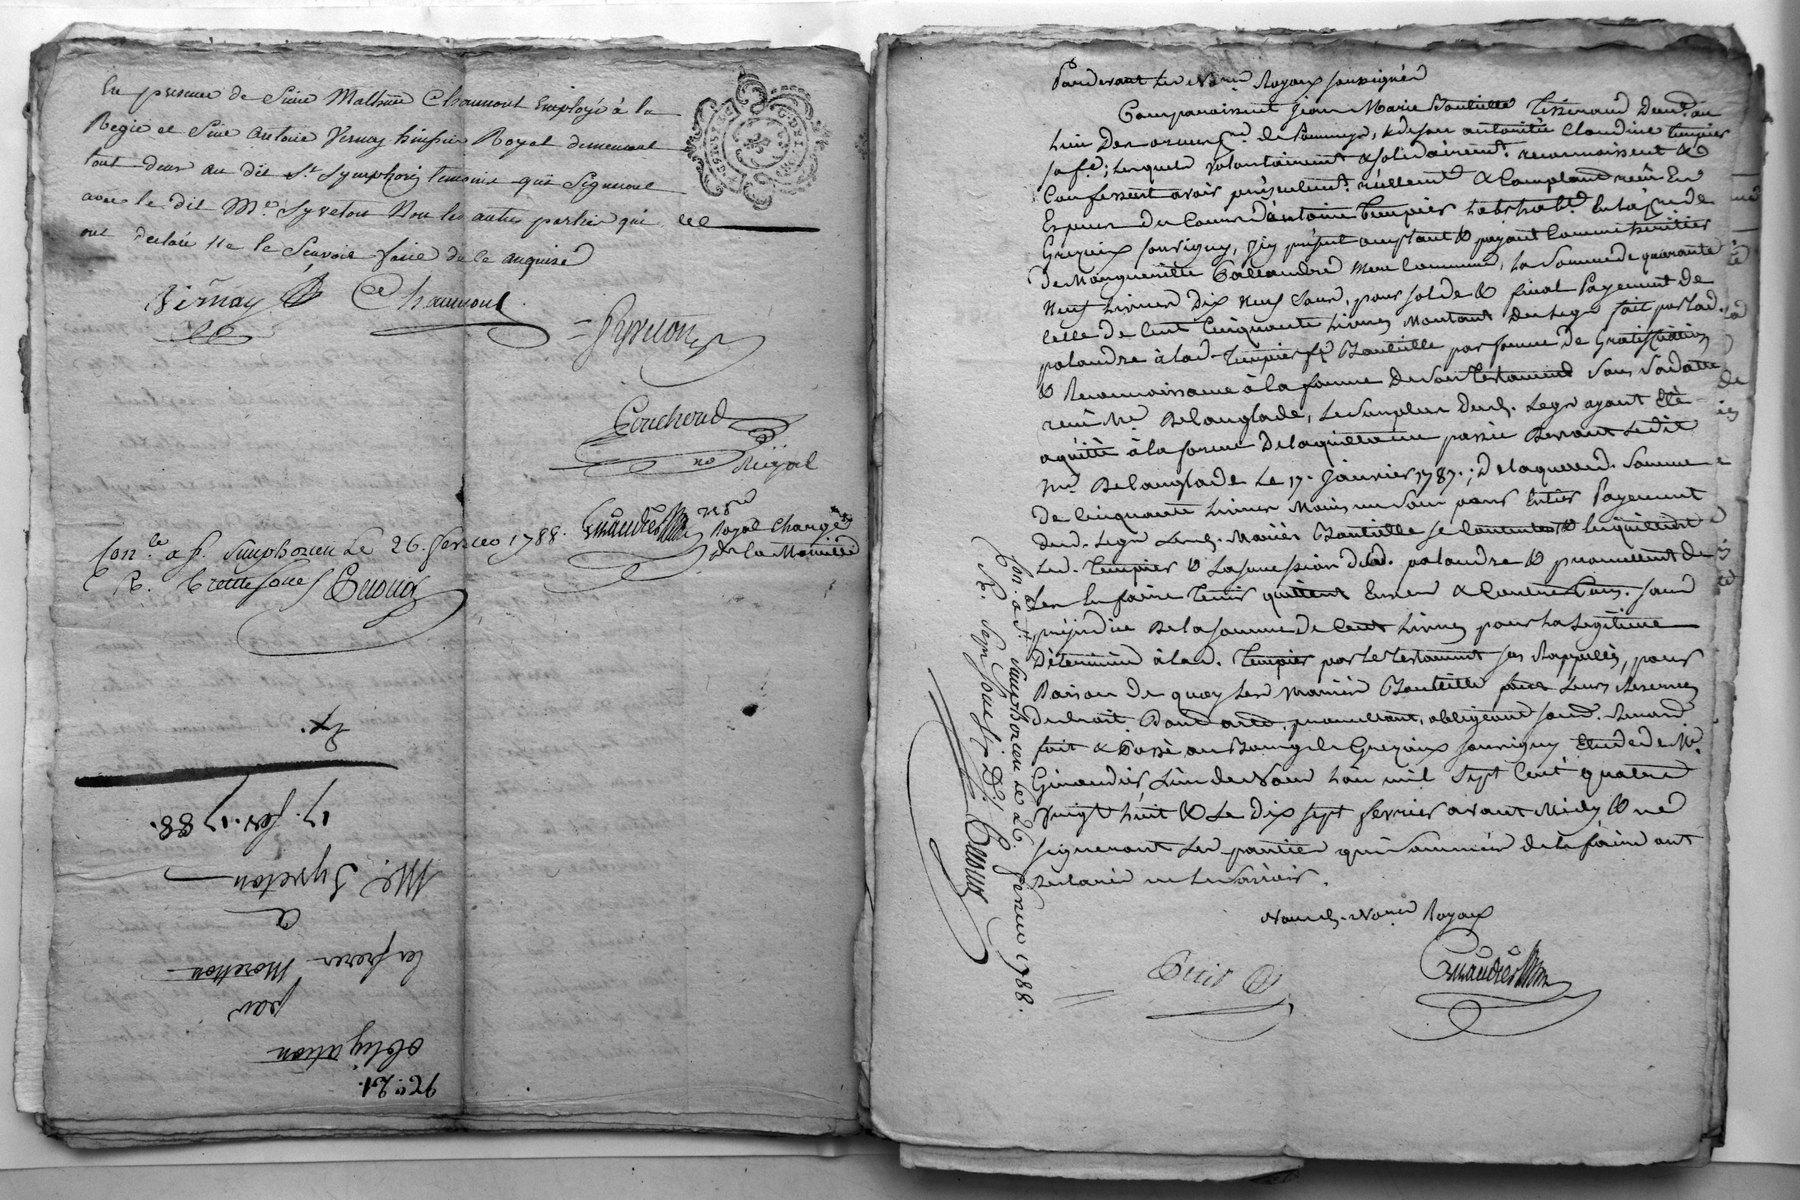 En presence de Sieur Mathieu Chaumont Employé à la
Regie et Sieur Antoine Vernay huissier Royal demeurant
tout deux au dit St Symphorien temoins qui Signeront
avec le dit Me Syveton Non les autres parties qui
ont declaré ne le Scavoir faire de ce enquises
Vernay Chaumont
Syveton
Couchoud
no Royal
Giraudier no re
Royal Chargé
de la Minutte
Con.lé a St Simphorien Le 26. fevrier 1788.
R. treize sous
17. fev. 1788.
Me. Syveton
a
les freres Moretton
par
obligation
No. 21.
Con. a St Simphorien le 26 fevrier 1788.
R. Sept sous
Pardevant les Nores Royaux soussignés
Comparaissent Jean Marie Bouteille tisserand demt. au
lieu de de Pommeys, & de son autorité Claudine Tempier
sa fe; lesquels volontairement & solidairement reconnoissent &
Confessent avoir présentement réellement & Comptant reçu En
Especes du Cours d'antoine Tempier habt de
Grezieux Souvigny, icy présent acceptant & payant Comme héritier
de Marguerite Palandre Mere Commune, la Somme de quarante
Neuf livres Dix Neuf Sous, pour solde & final Payement de
Celle de Cent Cinquante livres Montant du Legs fait par lad.
palandre à lad. Tempier fe Bouteille par forme de Gratiffication
& Reconnoissance à la forme de son Testament Sous Sa datte
reçu Me Delanglade, le Surplus dud. Legs ayant Eté
aquitté à la forme de la quittance passée Devant Ledit
Me Delanglade Le 17. Janvier 1787.; de laquelle d. Somme
de Cinquante livres Moins un Sou pour Entier Payement
dud. Legs Lesd. Mariés Bouteille se Contentent & En quittent
Led. Tempier & La succession de lad. palandre & promettent de
Les En faire tenir quittent Envers & Contre tous. Sans
préjudice De la somme de Cent livres pour la Legitime
Déterminée à lad. Tempier par le testament sus Rappellés, pour
Raison de quoy Les Mariés Bouteille font Leurs Reserves
de droit. Dont acte, promettant, obligeant
fait & Passé au Bourg de Grezieux Souvigny Etude de Me.
Giraudier L'un de Nous L'an mil Sept Cent quatre
Vingt huit & Le Dix sept fevrier avant Midy & ne
signeront Les parties qui Sommées de le faire ont
Declaré ne le Savoir.
Nousd. Nores Royaux
Giraudier